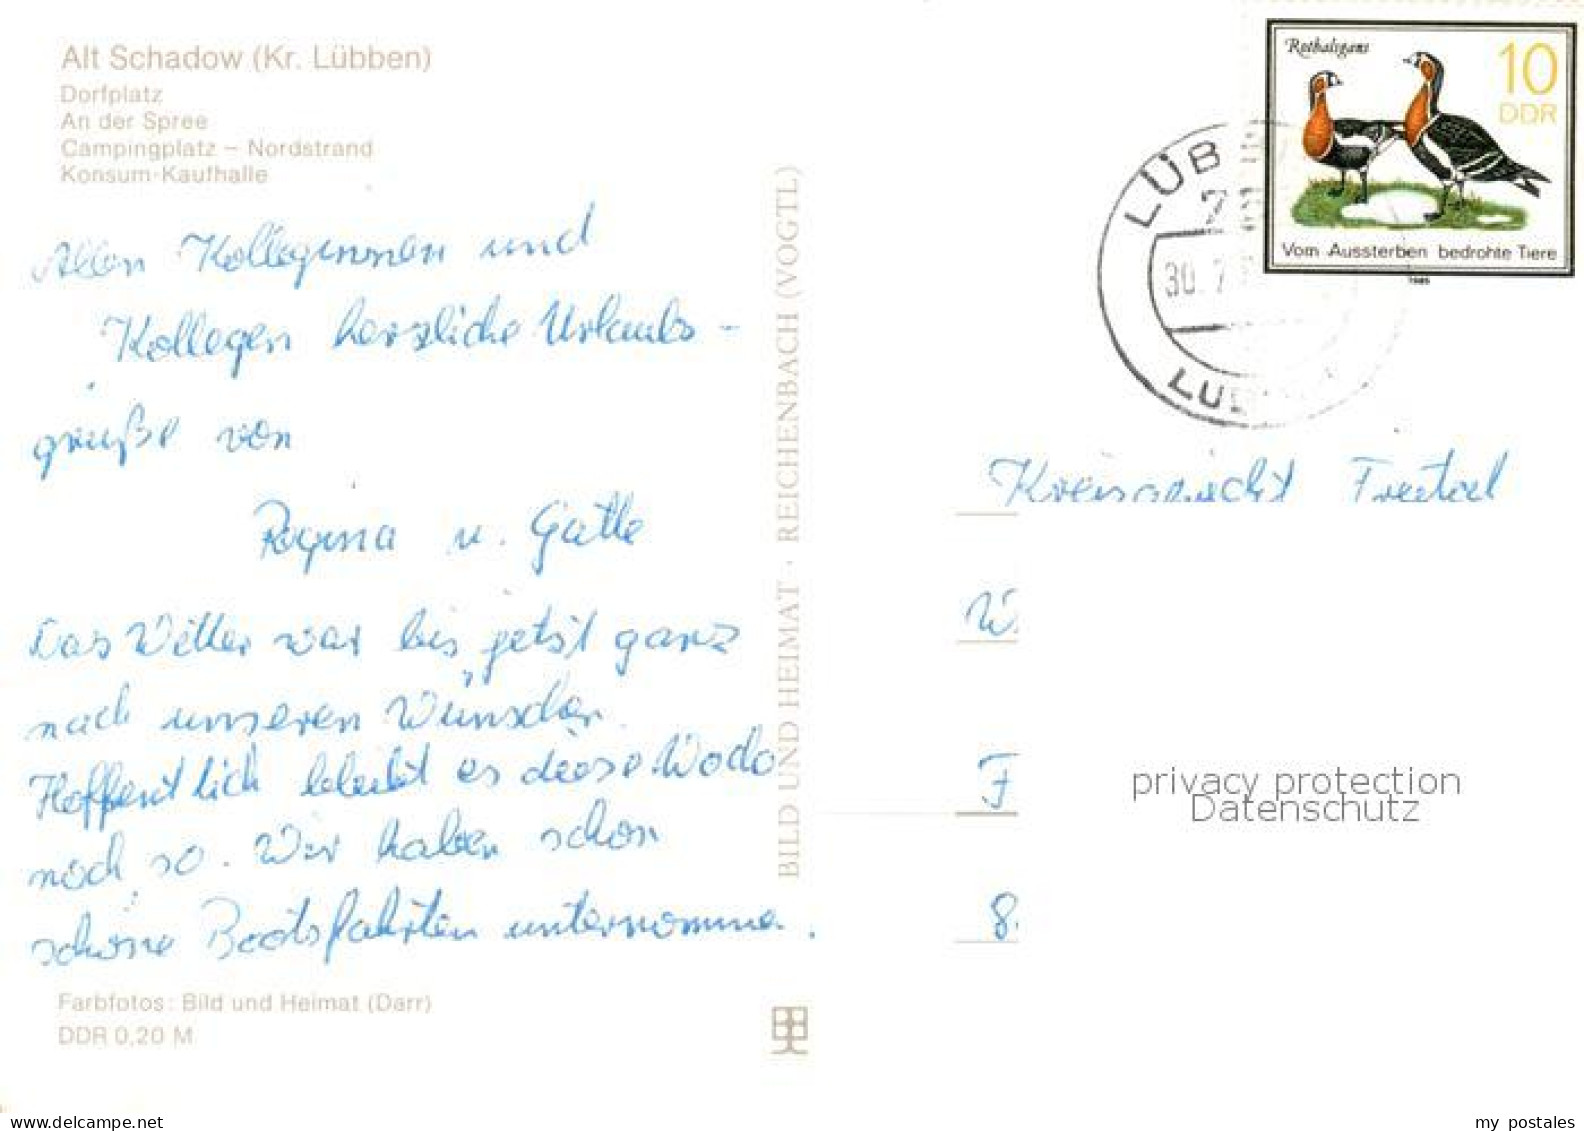 Alt Schadow (Kr. Lübben)
Dorfplatz
An der Spree
Campingplatz – Nordstrand
Konsum-Kaufhalle
Allen Kolleginnen und
Kollegen herzliche Urlaubs-
grüße von
Regina u. Gatte
Das Wetter war bis jetzt ganz
nach unseren Wünschen.
Hoffentlich bleibt es diese Woche
noch so. Wir haben schon
schöne Bootsfahrten unternommen.
Farbfotos: Bild und Heimat (Darr)
DDR 0,20 M
BILD UND HEIMAT · REICHENBACH (VOGTL)
Rothalsgans
10
DDR
Vom Aussterben bedrohte Tiere
1985
LÜB
30.7
Kreisgericht Freital
W
F
8
privacy protection
Datenschutz
www.delcampe.net
my postales